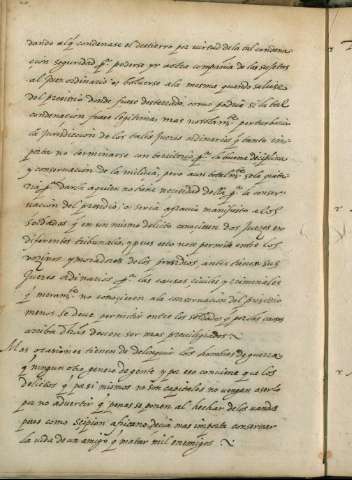 dando alg.º condenase el destierro por virtud de la tal condena
cion seguridad p.ª poderse yr a otra compañia de las sujetas
al juez ordinario o bolverse a la mesma quando saliese
del presidio donde fuese desterrado, como podria si la tal
condenacion fuese legitima; mas no solam.te perturbaria
la jurisdiccion de los tales juezes ordinarios y tanta im
porta no terminarse con territorio p.ª la buena deciplina
y conservacion de la milicia, pero aun total.te sola potes
tad p.ª darla a quien no tiene necesidad della p.ª la conser
vacion del presidio, o seria agravio manifiesto a los
soldados q en un mismo delito conociesen dos juezes en
diferentes tribunales, y pues esto no se permite entre los
vezinos y moradores de los presidios, antes tienen sus
juezes ordinarios p.ª las causas civiles y criminales
q meram.te no conciernen a la conservacion del presidio
menos se deve permitir entre los soldados q por las causas
arriba dhas deven ser mas previlegiados
Mas ocasiones tienen de delinquir los hombres de guerra
q ningun otro genero de gente y por eso conviene que los
delictos q pa si mismos no son capitales no vengan a serlo
por no advertir q penas se ponen al hechar de los vandos
pues como Scipion africano decia mas importa conservar
la vida de un amigo q matar mil enemigos